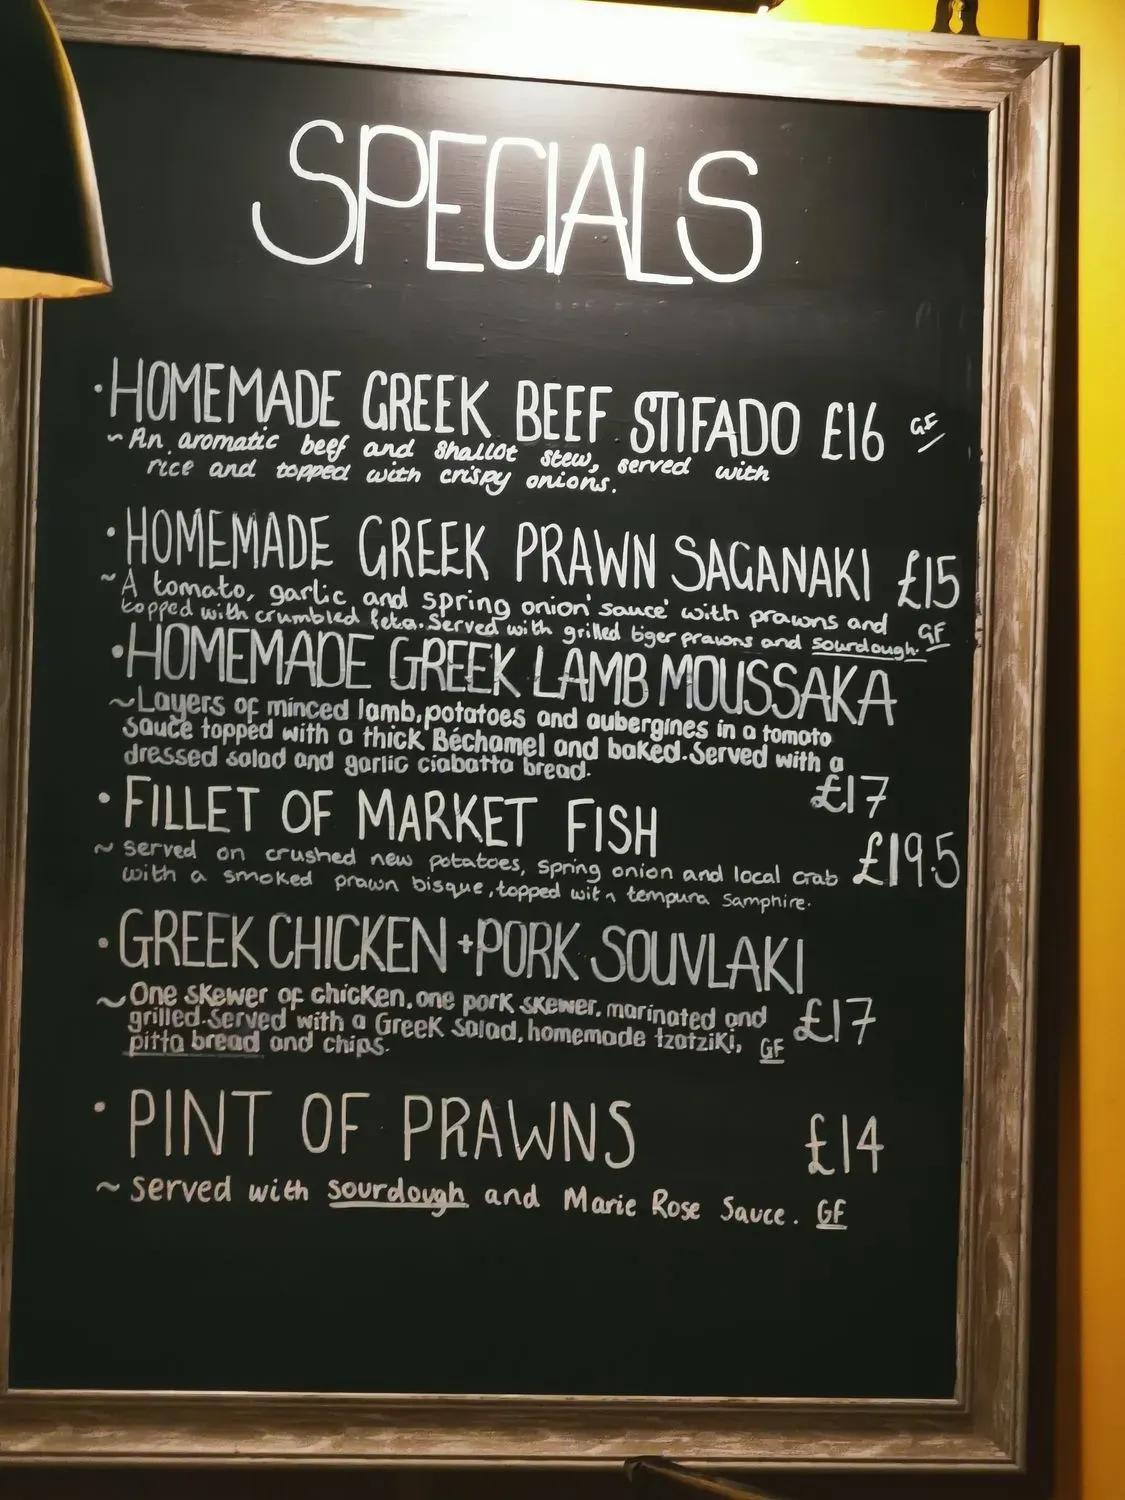 SPECIALS
• HOMEMADE GREEK BEEF STIFADO £16 GF
~ An aromatic beef and shallot stew, served with
rice and topped with crispy onions.
• HOMEMADE GREEK PRAWN SAGANAKI £15
~ A tomato, garlic and spring onion 'sauce' with prawns and
topped with crumbled feta. Served with grilled tiger prawns and sourdough. GF
• HOMEMADE GREEK LAMB MOUSSAKA
~ Layers of minced lamb, potatoes and aubergines in a tomato
sauce topped with a thick Béchamel and baked. Served with a
dressed salad and garlic ciabatta bread.
£17
• FILLET OF MARKET FISH
~ served on crushed new potatoes, spring onion and local crab £19.5
with a smoked prawn bisque, topped with tempura samphire.
• GREEK CHICKEN + PORK SOUVLAKI
~ One skewer of chicken, one pork skewer, marinated and £17
grilled. Served with a Greek salad, homemade tzatziki, GF
pitta bread and chips.
• PINT OF PRAWNS £14
~ served with sourdough and Marie Rose Sauce. GF